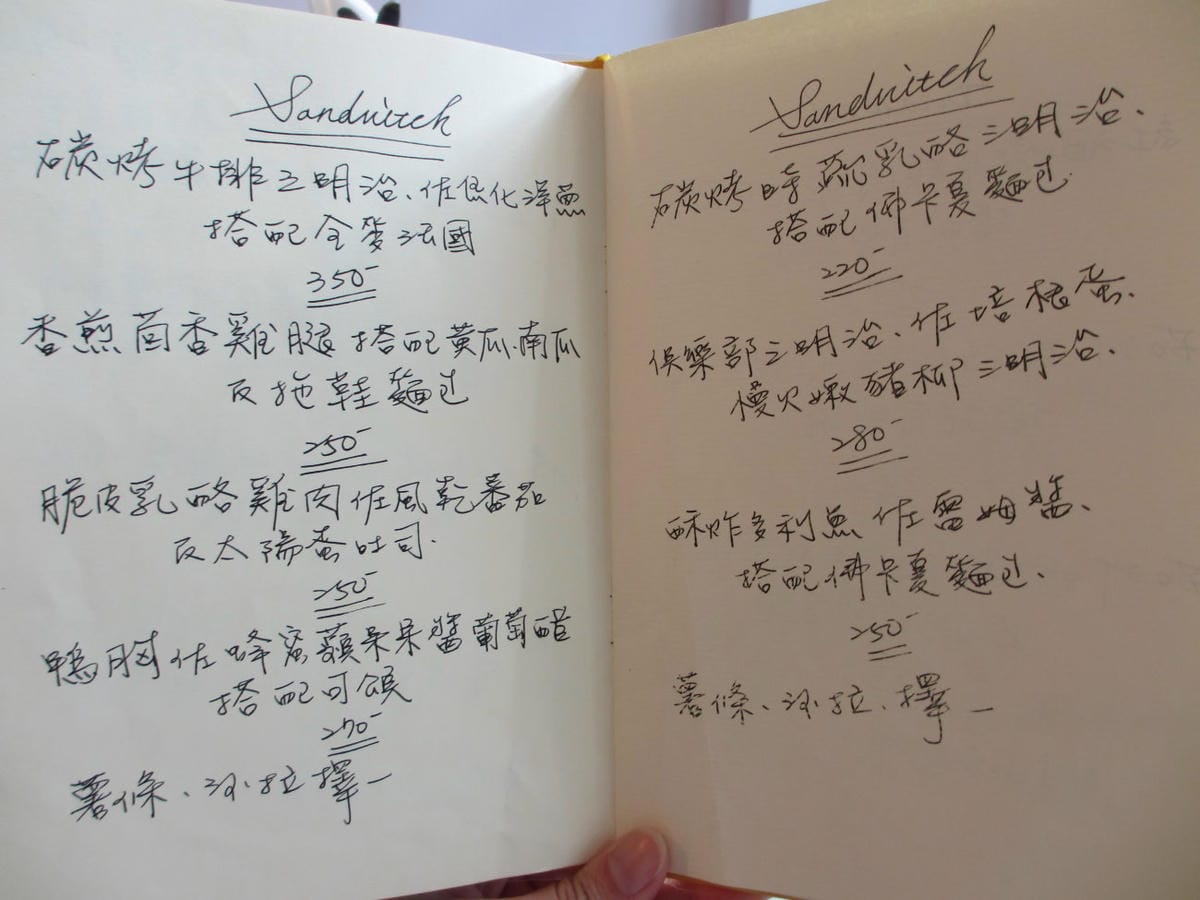 Sandwitch
碳烤牛排三明治、佐焦化洋蔥
搭配全麥法國
350-
香煎茴香雞腿搭配黃瓜、南瓜
及拖鞋麵包
250-
脆皮乳酪雞肉佐風乾番茄
及太陽蛋吐司.
250-
鴨胸佐蜂蜜蘋果果醬葡萄醋
搭配可頌
270-
薯條、沙拉擇一
Sandwitch
碳烤時蔬乳酪三明治、
搭配佛卡夏麵包
220-
俱樂部三明治、佐培根蛋、
慢火嫩豬柳三明治、
280-
酥炸多利魚佐雷姆醬、
搭配佛卡夏麵包、
250-
薯條、沙拉、擇一